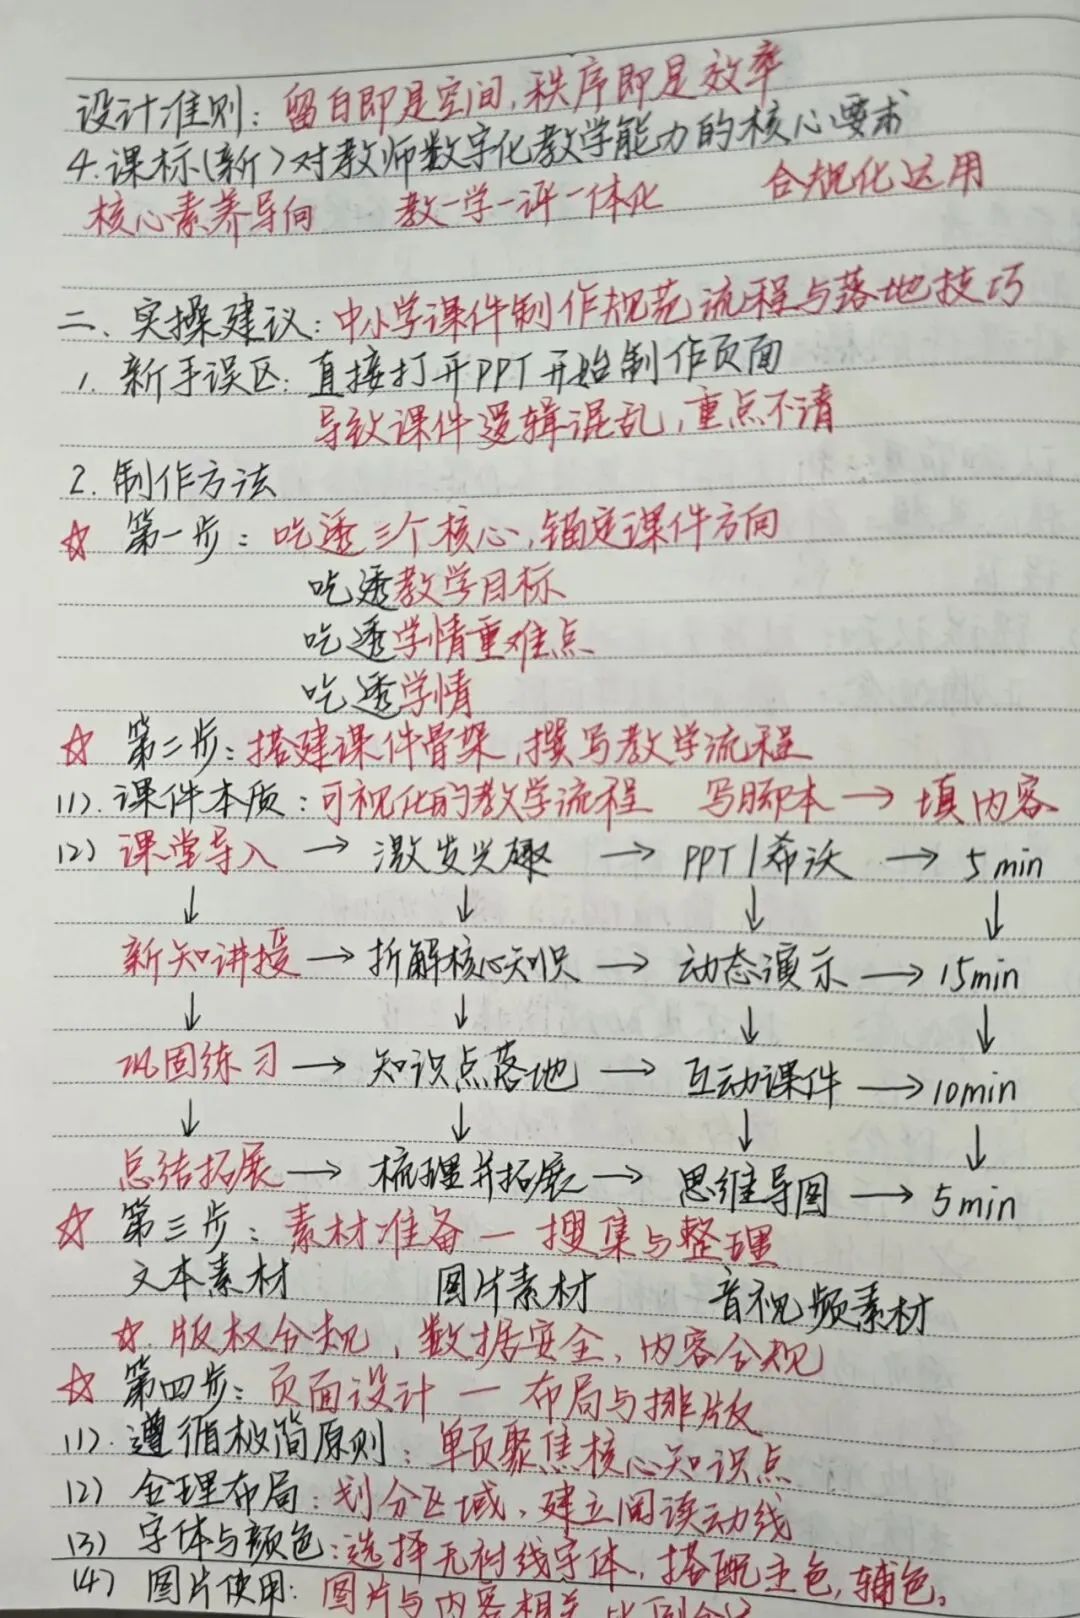 设计准则：留白即是空间，秩序即是效率
4.课标(新)对教师数字化教学能力的核心要求
核心素养导向 教一学一评一体化 合规化运用
二、实操建议：中小学课件制作规范流程与落地技巧
1. 新手误区：直接打开PPT开始制作页面
导致课件逻辑混乱，重点不清
2. 制作方法
☆ 第一步：吃透三个核心，锚定课件方向
吃透教学目标
吃透学情重难点
吃透学情
☆ 第二步：搭建课件骨架，撰写教学流程
(1). 课件本质：可视化的教学流程 写脚本 → 填内容
(2) 课堂导入 → 激发兴趣 → PPT/希沃 → 5min
↓ ↓ ↓ ↓
新知讲授 → 拆解核心知识 → 动态演示 → 15min
↓ ↓ ↓ ↓
巩固练习 → 知识点落地 → 互动课件 → 10min
↓ ↓ ↓ ↓
总结拓展 → 梳理并拓展 → 思维导图 → 5min
☆ 第三步：素材准备 — 搜集与整理
文本素材 图片素材 音视频素材
☆. 版权合规，数据安全，内容合规
☆ 第四步：页面设计 — 布局与排版
(1). 遵循极简原则：单页聚焦核心知识点
(2) 合理布局：划分区域，建立阅读动线
(3) 字体与颜色：选择无衬线字体，搭配主色，辅色。
(4) 图片使用：图片与内容相关